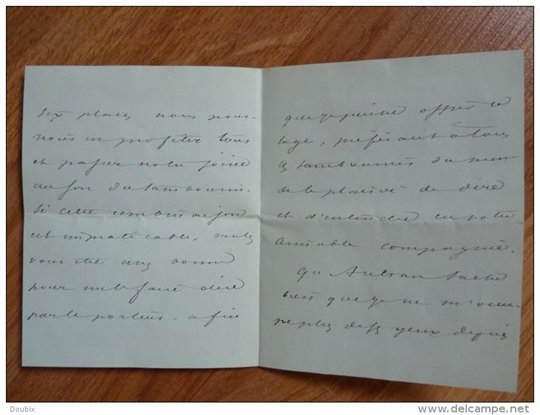 six places nous pour-
rions en profiter tous
et passer notre soirée
au son du tambourin.
Si cette combinaison
est impraticable, 
vous être assez bonne
pour me le faire dire
par le porteur, afin
que je puisse offrir
loge, préférant à tous
les tambourins du monde
le plaisir de dire
et d'entendre en votre
aimable compagnie.
Qu'Autran sache
bien que je ne m'occu-
pe plus de yeux depuis
Doubix
delcampe.net